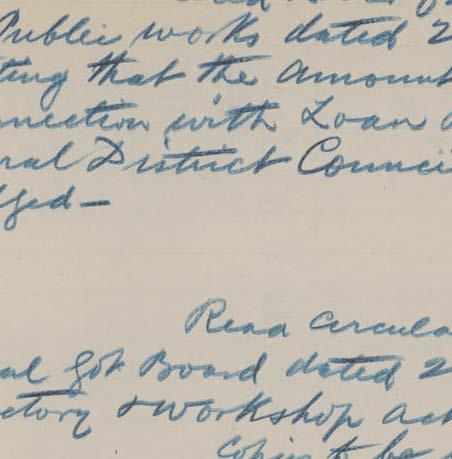 Public works dated 2
ting that the amount
nnection with Loan
ral District Counci
dged —
Read Circula
al Got Board dated 2
ctory & workshop act
Copies to be